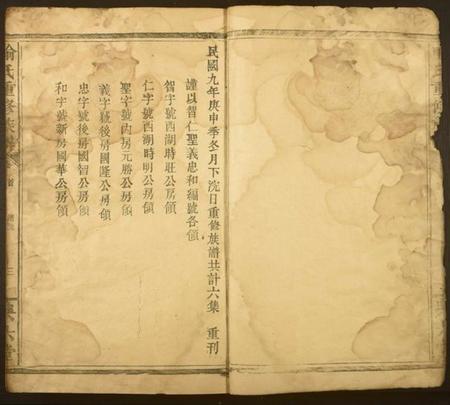 民國九年庚申季冬月下浣日重修族譜共計六集 重刊
謹以智仁聖義忠和編號各領
智字號西湖時旺公房領
仁字號西湖時明公房領
聖字號內房元勝公房領
義字號後房國匯公房領
忠字號後房國智公房領
和字號新房國華公房領
氏重修族譜